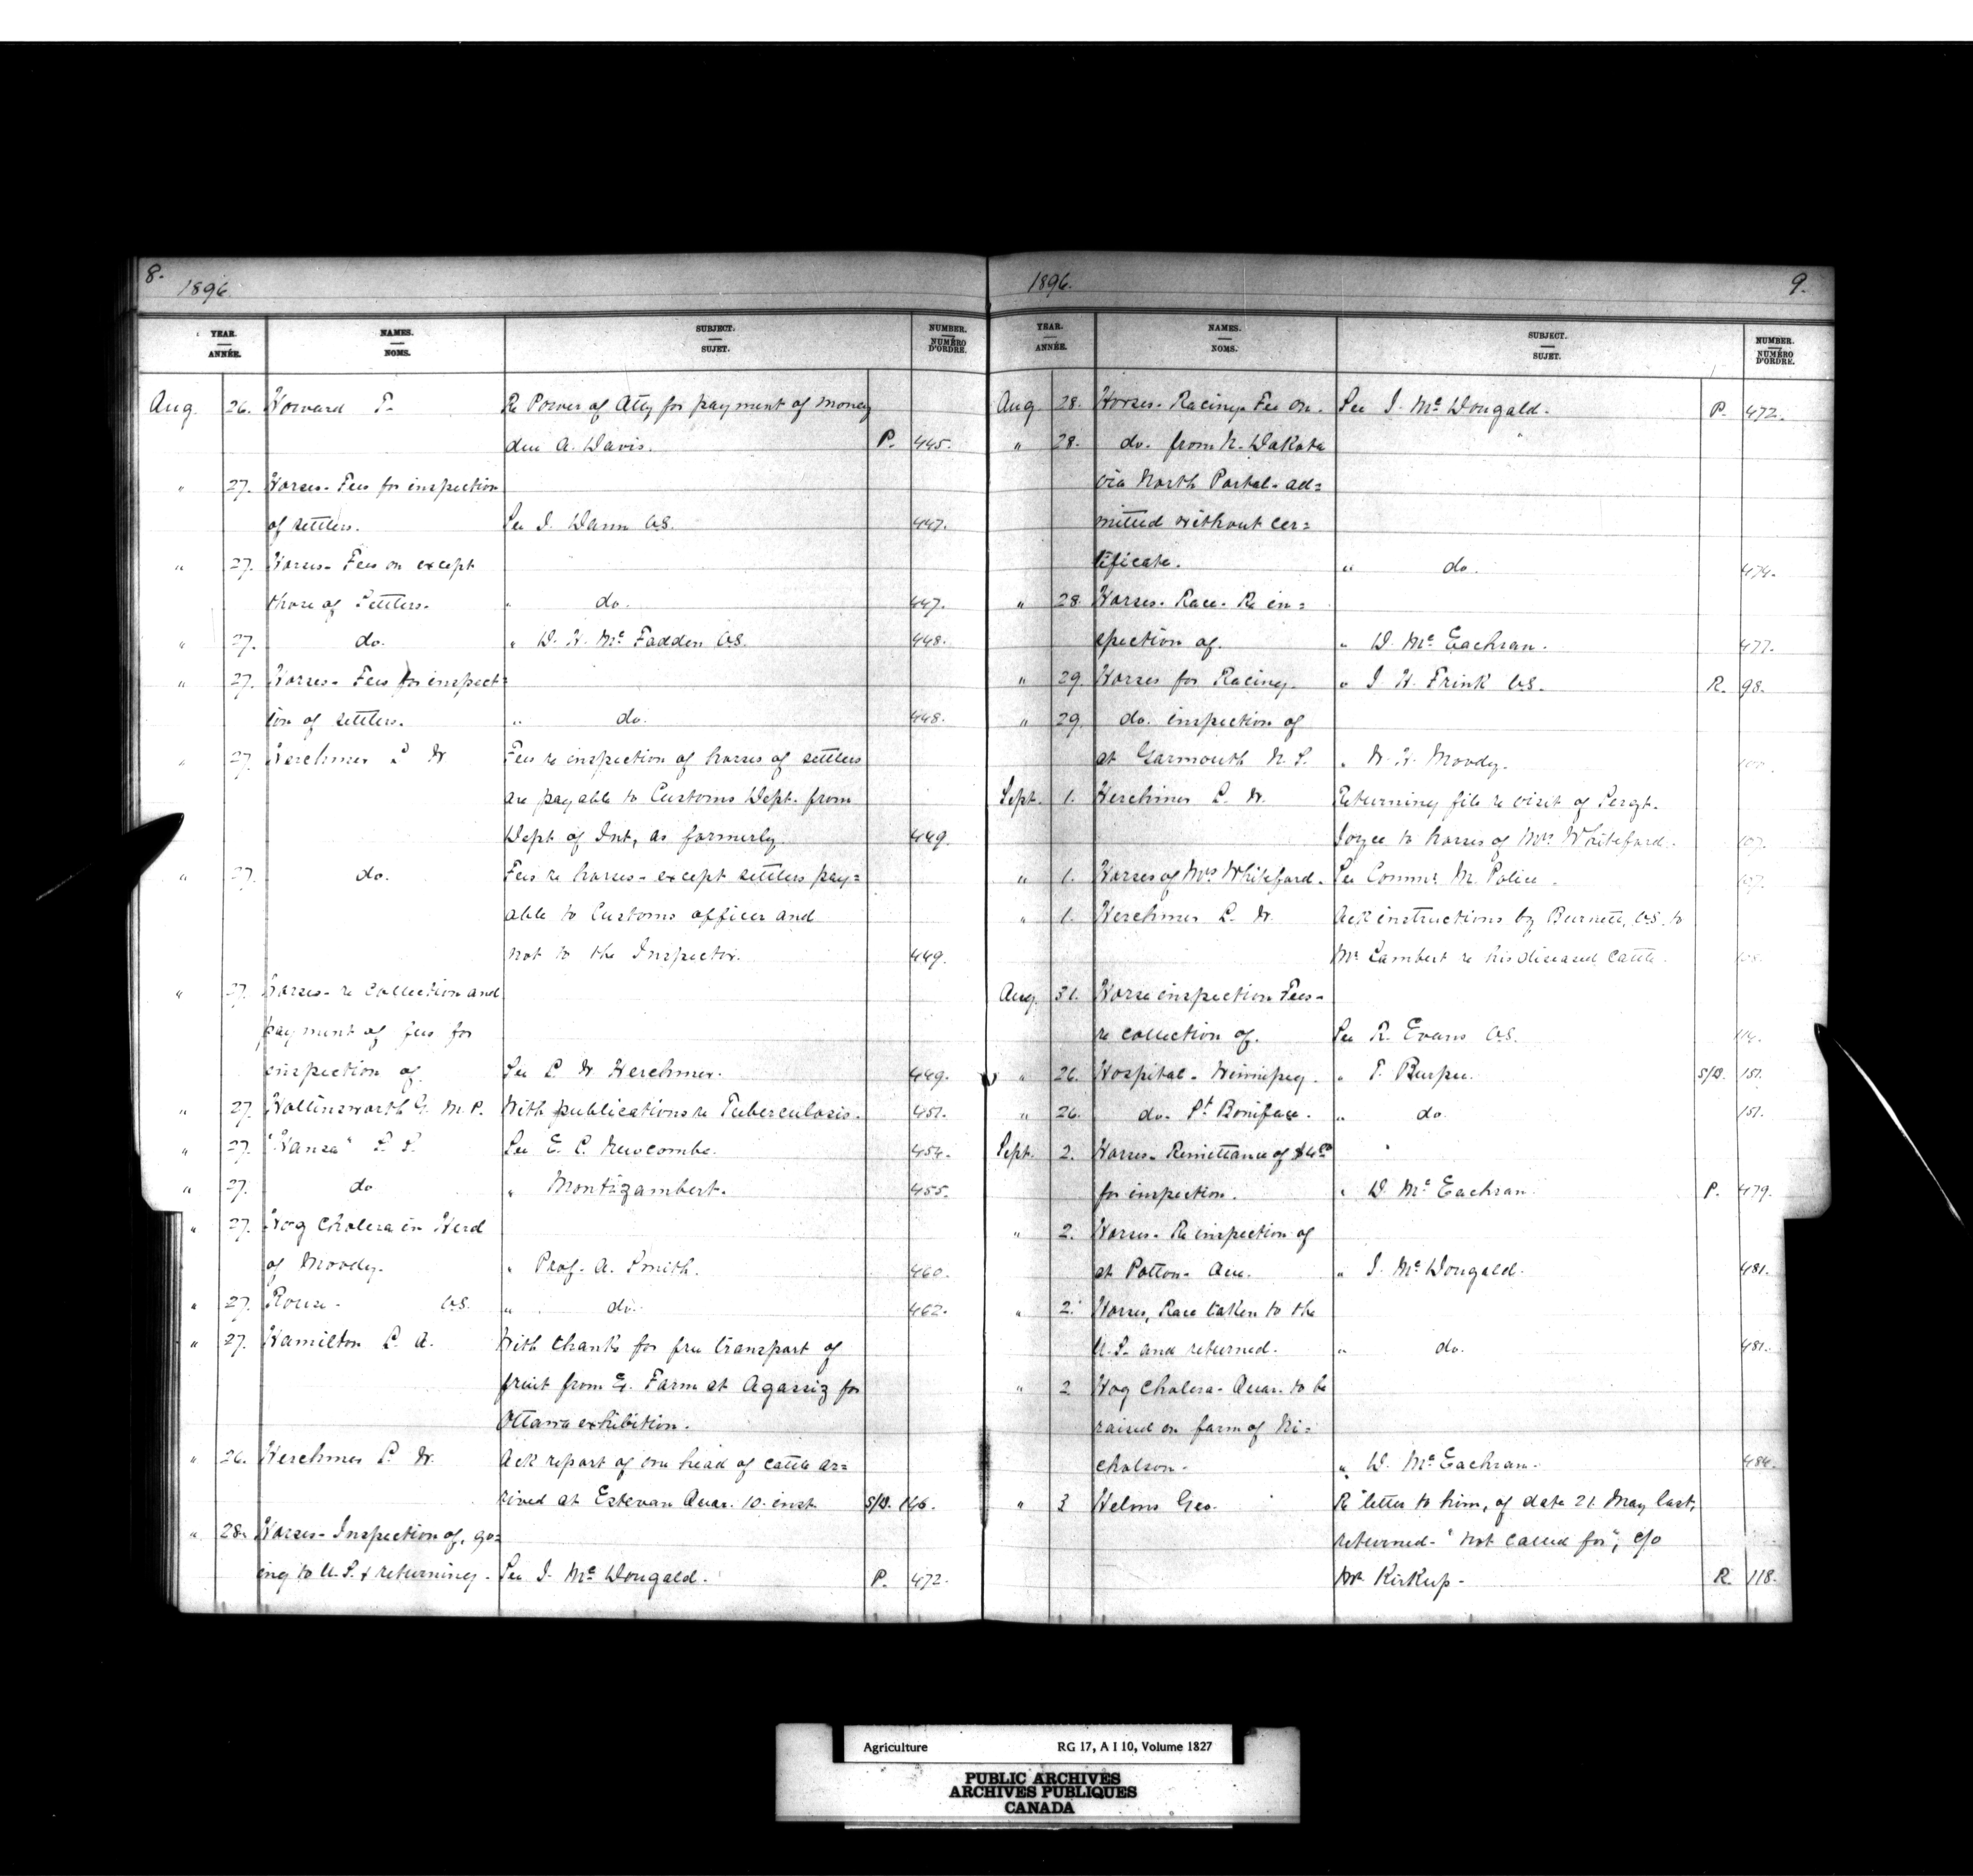 8.
1896
YEAR. ANNÉE. NAMES. NOMS. SUBJECT. SUJET. NUMBER. NUMÉRO D'ORDRE.
Aug. 26. Howard T. Re Power of Atty for payment of money
due A. Davis. P. 445.
" 27. Horses - Fees for inspection
of settlers. See J. Dann V.S. 447.
" 27. Horses - Fees on except
those of Settlers. " do. 447.
" 27. do. " D. H. McFadden V.S. 448.
" 27. Horses - Fees for inspect=
ion of settlers. " do. 448.
" 27. Herchmer L. W. Fees re inspection of horses of settlers
are payable to Customs Dept. from
Dept of Int, as formerly 449.
" 27. do. Fees re horses - except settlers pay=
able to Customs officer and
not to the Inspector. 449.
" 27. Horses - re collection and
payment of fees for
inspection of. See L. W. Herchmer. 449.
" 27. Hollinsworth G. M.P. With publications re Tuberculosis. 451.
" 27. "Hansa" S.S. See E. L. Newcombe. 454.
" 27. do " Montizambert. 455.
" 27. Hog Cholera in Herd
of Moody. " Prof. A. Smith. 460.
" 27. V.S. " do. 462.
" 27. Hamilton L. A. With thanks for free transport of
fruit from E. Farm at Agassiz for
Ottawa exhibition.
" 26. Herchmer L. W. Ack report of one head of cattle ar=
rived at Estevan Quar. 10. inst. S/B. 146.
" 28. Horses - Inspection of, go=
ing to U.S. & returning. See J. McDougald. P. 472.
1896. 9.
YEAR. ANNÉE. NAMES. NOMS. SUBJECT. SUJET. NUMBER. NUMÉRO D'ORDRE.
Aug. 28. Horses - Racing - Fee on. See J. McDougald. P. 472.
" 28. do. from N. Dakota
via North Portal - ad=
mitted without cer=
tificate. " do. 474.
" 28. Horses - Race - Re in=
spection of. " D. McEachran. 477.
" 29. Horses for Racing. " J. H. Frink V.S. R. 98.
" 29. do. inspection of
at Yarmouth N.S. " W. H. Moody. 100.
Sept. 1. Herchmer L. W. Returning file re visit of Sergt.
Joyce to horses of Mrs Whiteford. 107.
" 1. Horses of Mrs Whiteford. See Commr. M. Police. 107.
" 1. Herchmer L. W. Ack instructions by Burnett, V.S. to
Mr Lambert re his diseased cattle. 108.
Aug. 31. Horse inspection Fees -
re collection of. See R. Evans V.S. 114.
" 26. Hospital - Winnipeg. " T. Burpee. S/B. 151.
" 26. do. St Boniface. " do. 151.
Sept. 2. Horses - Remittance of
for inspection. " D. McEachran. P. 479.
" 2. Horses - Re inspection of
at Potton - Que. " J. McDougald. 481.
" 2. Horses, Race taken to the
U.S. and returned. " do. 481.
" 2. Hog Cholera - Quar. to be
raised on farm of Ni=
cholson. " D. McEachran. 484.
" 3 Helms Geo. Re letter to him, of date 21. May last,
returned - "not called for", c/o
Kirkup. R. 118.
Agriculture RG 17, A I 10, Volume 1827
PUBLIC ARCHIVES
ARCHIVES PUBLIQUES
CANADA